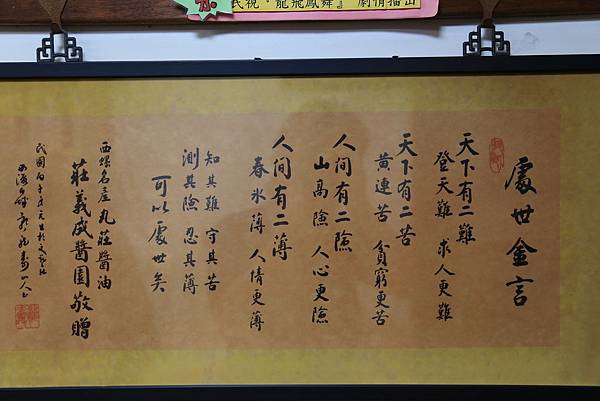 民祝‧龍飛鳳舞』劇情插曲
處世金言
天下有二難
登天難 求人更難
天下有二苦
黃連苦 貧窮更苦
人间有二險
山高險 人心更險
人间有二薄
春氷薄 人情更薄
知其難 守其苦
測其險 忍其薄
可以處世矣
西螺名産丸莊醬油
莊義成醬園敬贈